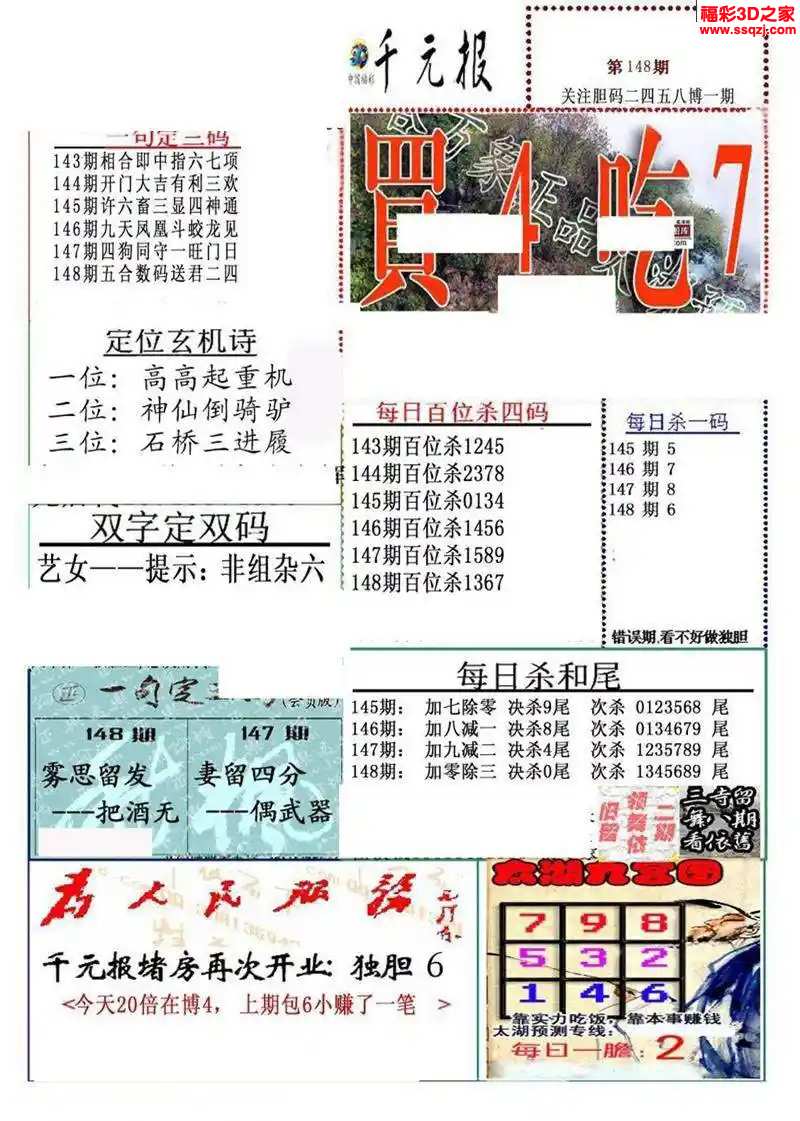 福彩3D之家
www.ssqzj.com
中国福彩
千元报
第148期
关注胆码二四五八博一期
一句定三码
143期相合即中指六七项
144期开门大吉有利三欢
145期许六畜三显四神通
146期九天凤凰斗蛟龙见
147期四狗同守一旺门日
148期五合数码送君二四
買4吃7
定位玄机诗
一位：高高起重机
二位：神仙倒骑驴
三位：石桥三进履
双字定双码
艺女——提示：非组杂六
每日百位杀四码
143期百位杀1245
144期百位杀2378
145期百位杀0134
146期百位杀1456
147期百位杀1589
148期百位杀1367
每日杀一码
145 期 5
146 期 7
147 期 8
148 期 6
错误期,看不好做独胆
每日杀和尾
145期： 加七除零 决杀9尾 次杀 0123568 尾
146期： 加八减一 决杀8尾 次杀 0134679 尾
147期： 加九减二 决杀4尾 次杀 1235789 尾
148期： 加零除三 决杀0尾 次杀 1345689 尾
正
一句定三
(会员版)
148 期
雾思留发
---把酒无
147 期
妻留四分
---偶武器
旧留
领舞依
二期
三寺留
舞八期
看依舊
为人民服务
千元报堵房再次开业：独胆 6
<今天20倍在博4，上期包6小赚了一笔 >
太湖九宫图
7 9 8
5 3 2
1 4 6
靠实力吃饭，靠本事赚钱
太湖预测专线：
每日一胆：2